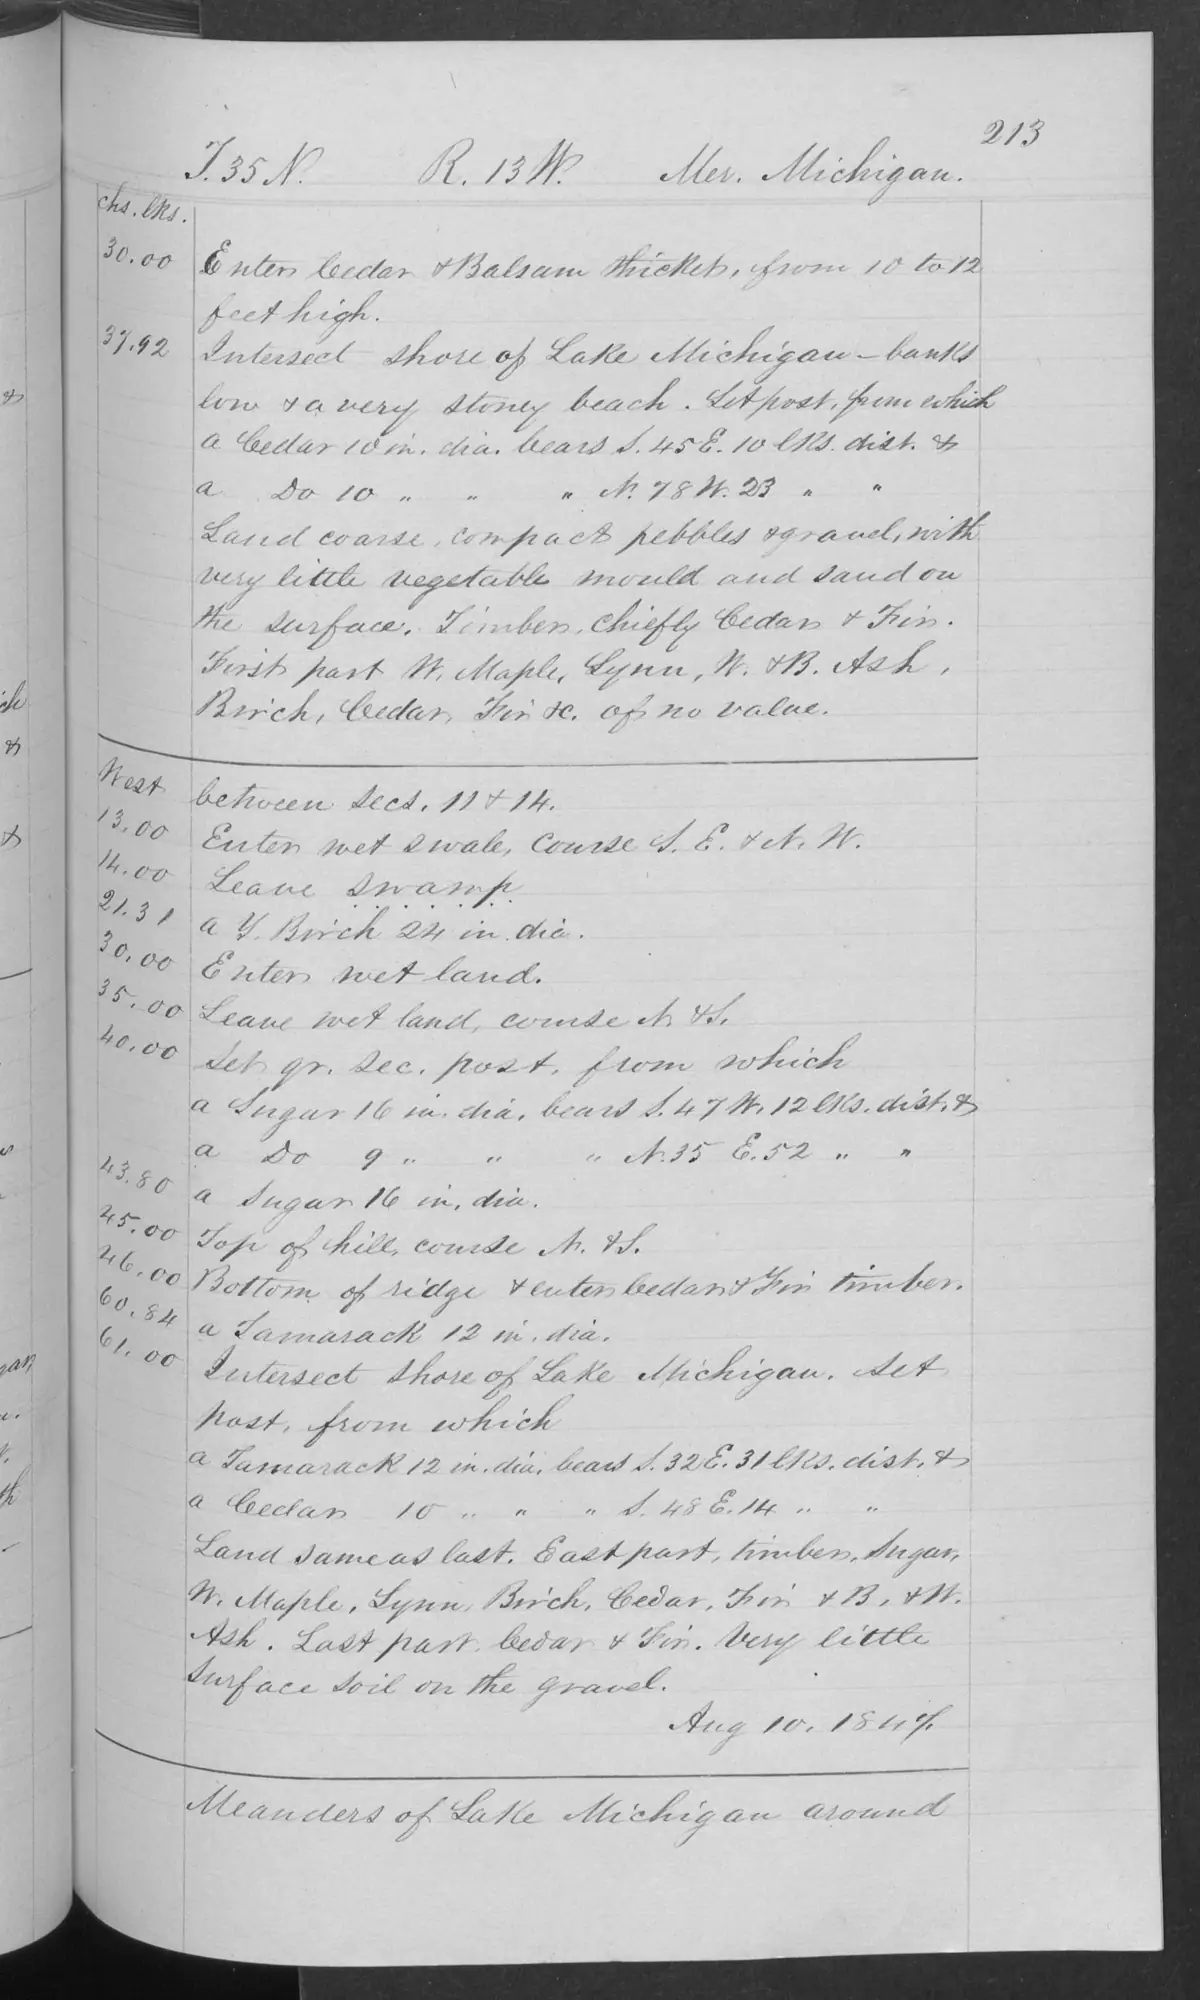 213
T. 35 N. R. 13 W. Mer. Michigan.
chs. lks.
30.00 Enter Cedar & Balsam thicket, from 10 to 12
feet high.
37.92 Intersect shore of Lake Michigan – banks
low & a very stoney beach. Set post, from which
a Cedar 10 in. dia. bears S. 45 E. 10 lks. dist. &
a Do 10 " " " N. 78 W. 23 " "
Land coarse, compact pebbles & gravel, with
very little vegetable mould and sand on
the surface. Timber, chiefly Cedar & Fir.
First part W. Maple, Lynn, W. & B. Ash,
Birch, Cedar, Fir &c. of no value.
West between secs. 11 & 14.
13.00 Enter wet swale, course S. E. & N. W.
14.00 Leave swamp
21.31 a Y. Birch 24 in. dia.
30.00 Enter wet land.
35.00 Leave wet land, course N. & S.
40.00 Set qr. sec. post, from which
a Sugar 16 in. dia. bears S. 47 W. 12 lks. dist. &
a Do 9 " " " N. 35 E. 52 " "
43.80 a Sugar 16 in. dia.
45.00 Top of hill, course N. & S.
46.00 Bottom of ridge & enter Cedar & Fir timber.
60.84 a Tamarack 12 in. dia.
61.00 Intersect shore of Lake Michigan. Set
post, from which
a Tamarack 12 in. dia. bears S. 32 E. 31 lks. dist. &
a Cedar 10 " " " S. 48 E. 14 " "
Land same as last. East part, timber, Sugar,
W. Maple, Lynn, Birch, Cedar, Fir & B. & W.
Ash. Last part Cedar & Fir. Very little
surface soil on the gravel.
Aug 10. 1847.
Meanders of Lake Michigan around